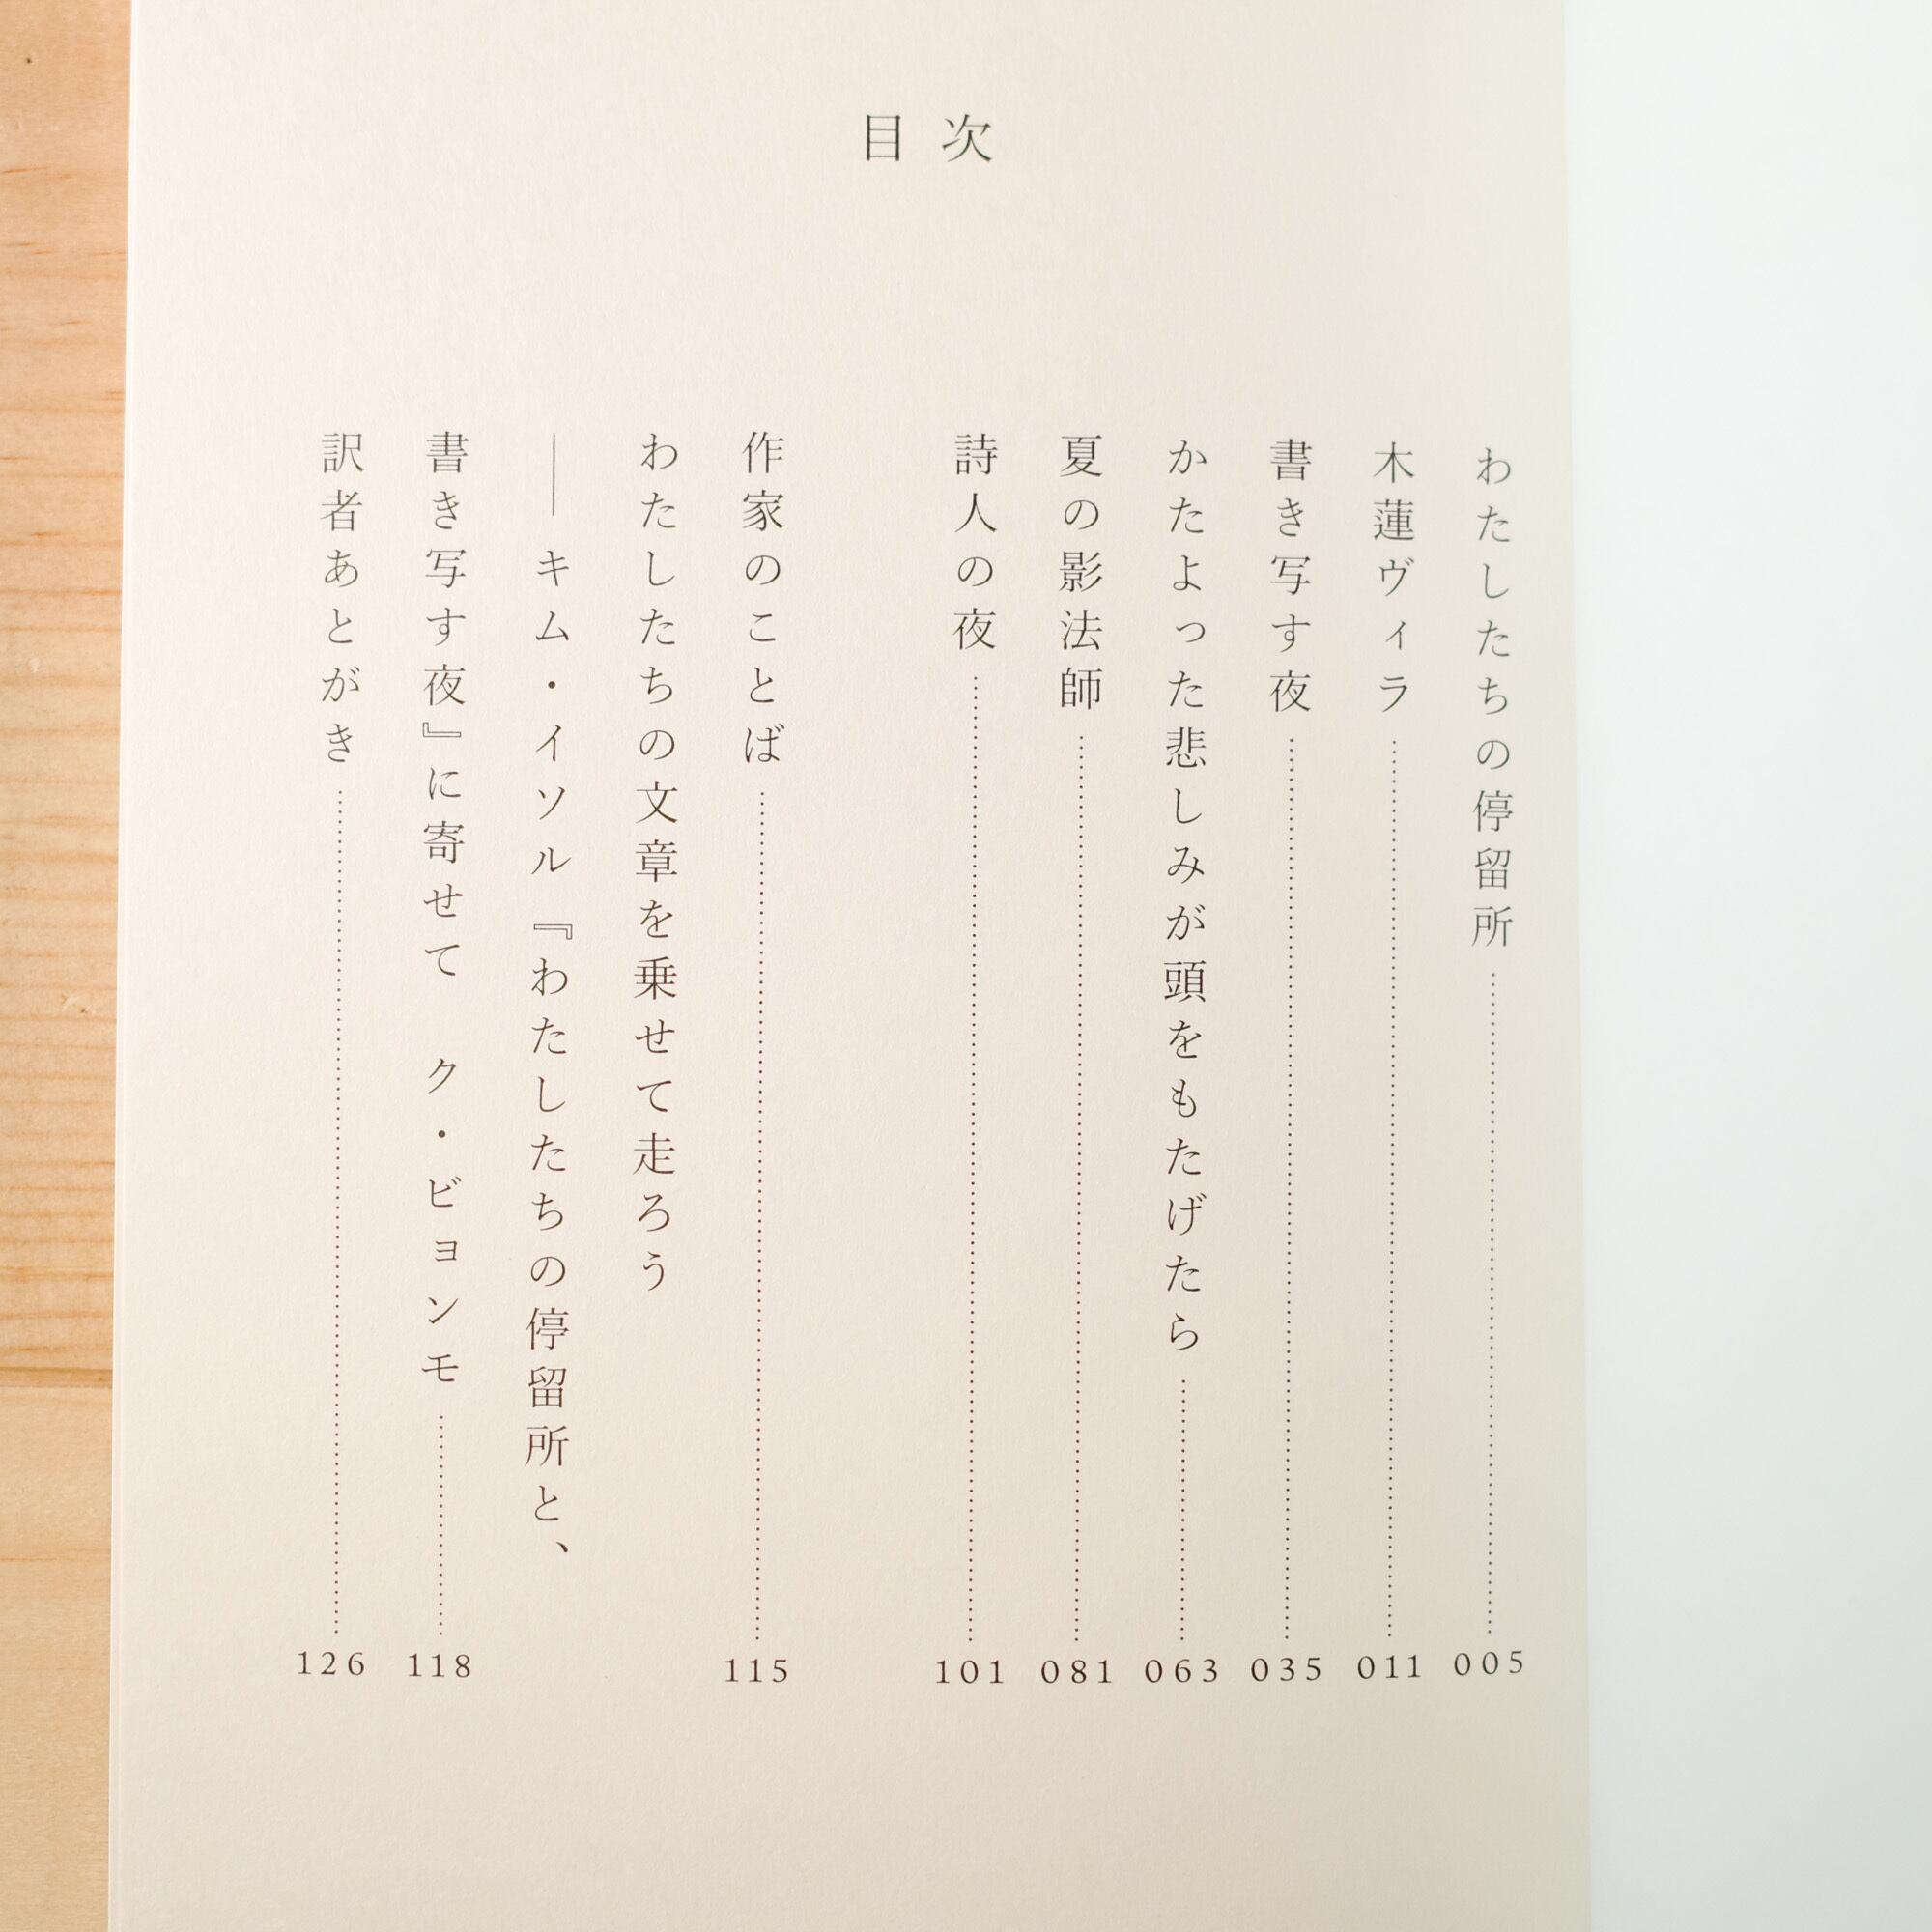 目次
わたしたちの停留所 005
木蓮ヴィラ 011
書き写す夜 035
かたよった悲しみが頭をもたげたら 063
夏の影法師 081
詩人の夜 101
作家のことば 115
わたしたちの文章を乗せて走ろう
―― キム・イソル『わたしたちの停留所と、
書き写す夜』に寄せて　ク・ビョンモ 118
訳者あとがき 126